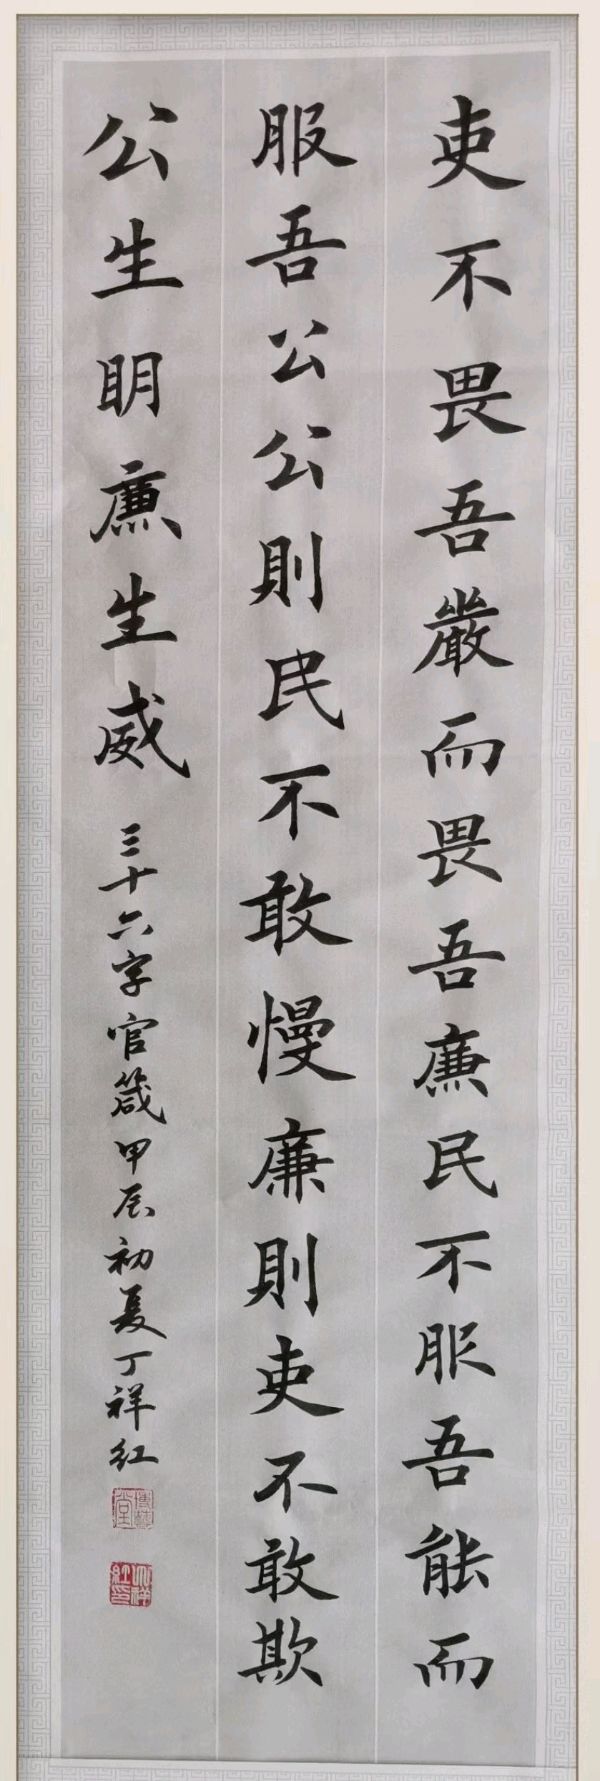 吏不畏吾嚴而畏吾廉民不服吾能而
服吾公公則民不敢慢廉則吏不敢欺
公生明廉生威
三十六字官箴甲辰初夏丁祥红